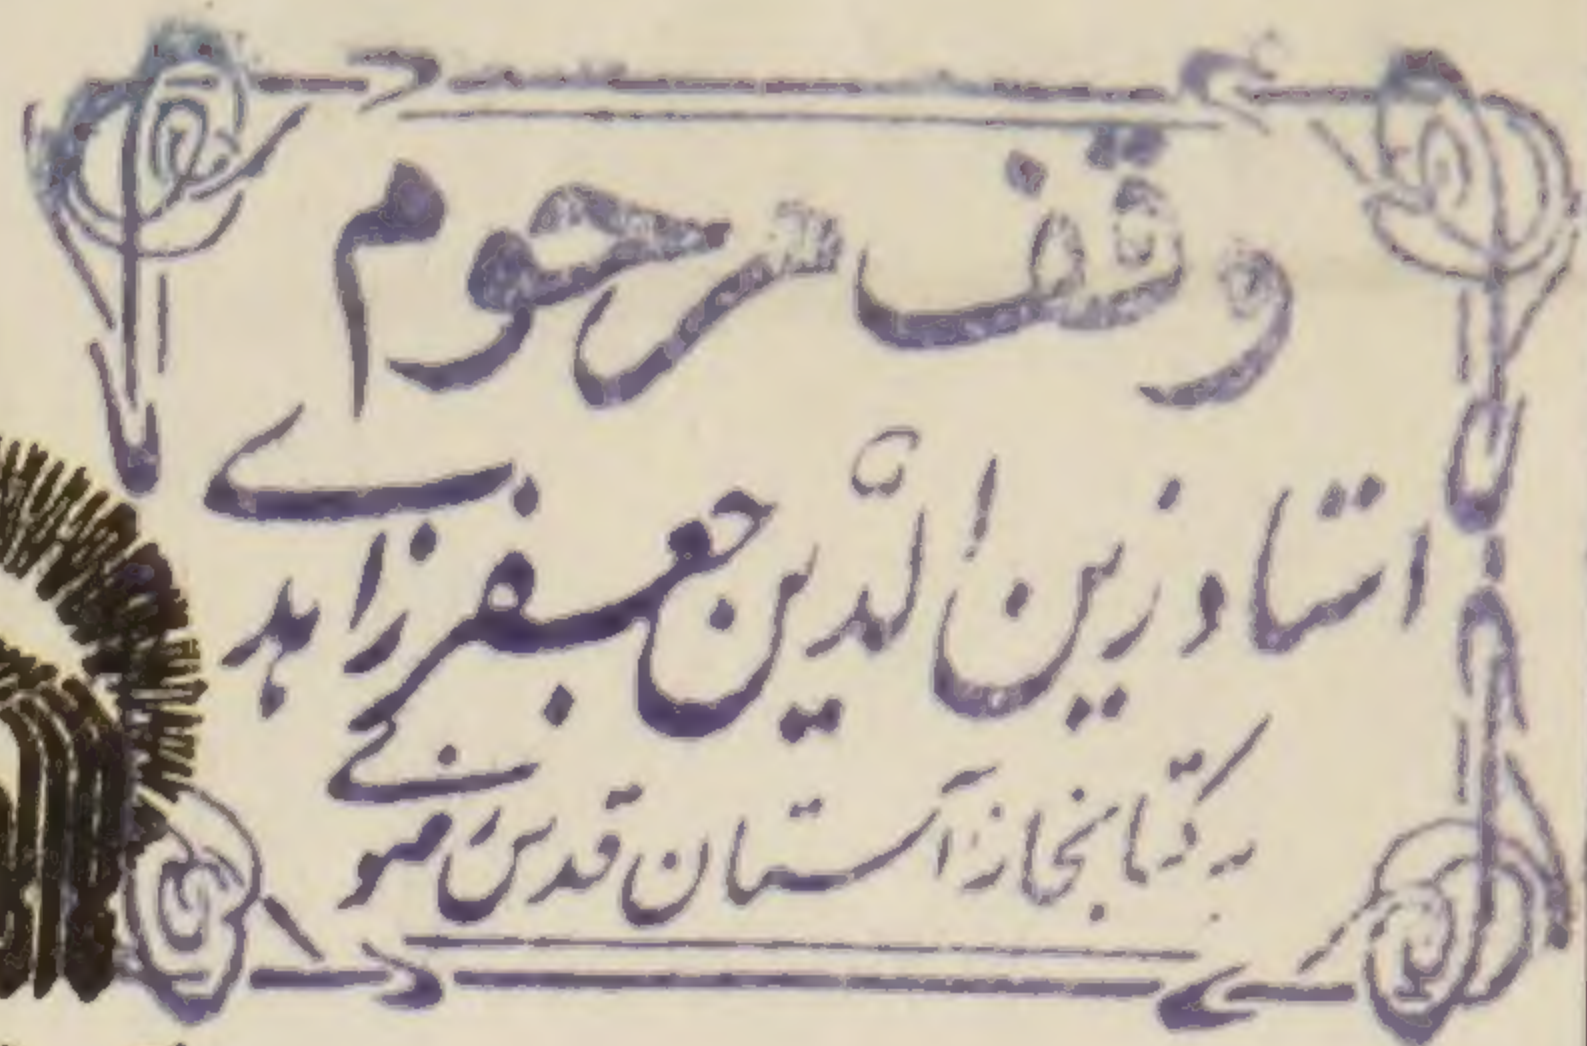 وقف مرحوم
استاد زین الدّین جعفر زاهدی
به کتابخانه آستان قدس رضوی